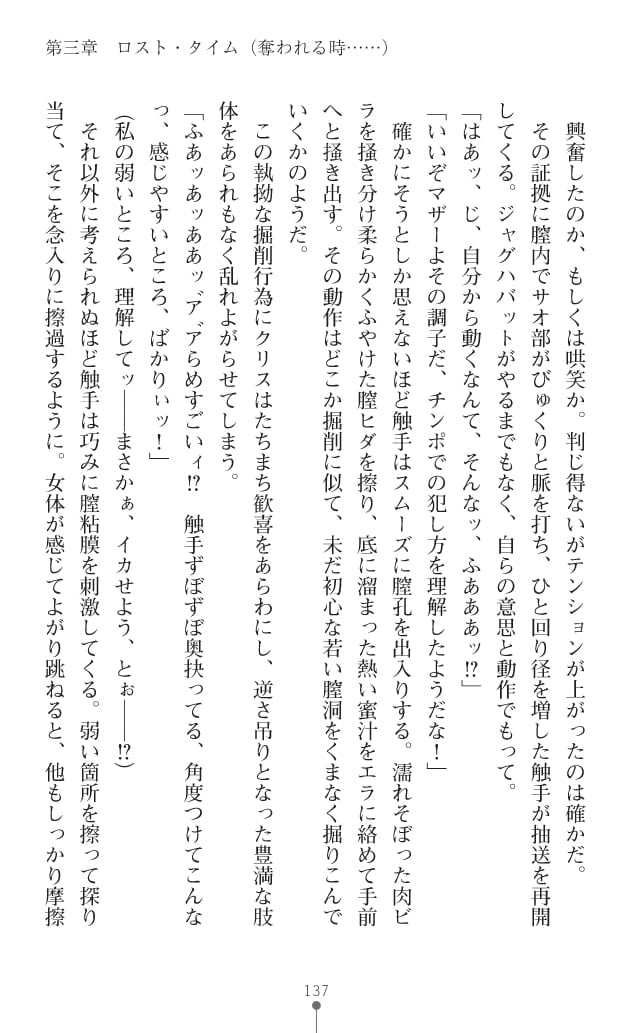 第三章　ロスト・タイム（奪われる時……）
　興奮したのか、もしくは哄笑か。判じ得ないがテンションが上がったのは確かだ。
　その証拠に膣内でサオ部がびゅくりと脈を打ち、ひと回り径を増した触手が抽送を再開
してくる。ジャグハバットがやるまでもなく、自らの意思と動作でもって。
「はあッ、じ、自分から動くなんて、そんなッ、ふあああッ!?」
「いいぞマザーよその調子だ、チンポでの犯し方を理解したようだな！」
　確かにそうとしか思えないほど触手はスムーズに膣孔を出入りする。濡れそぼった肉ビ
ラを掻き分け柔らかくふやけた膣ヒダを擦り、底に溜まった熱い蜜汁をエラに絡めて手前
へと掻き出す。その動作はどこか掘削に似て、未だ初心な若い膣洞をくまなく掘りこんで
いくかのようだ。
　この執拗な掘削行為にクリスはたちまち歓喜をあらわにし、逆さ吊りとなった豊満な肢
体をあられもなく乱れよがらせてしまう。
「ふあッあッああッ゛ア゛アらめすごいィ!?　触手ずぼずぼ奥抉ってる、角度つけてこんな
っ、感じやすいところ、ばかりぃッ！」
（私の弱いところ、理解してッ――まさかぁ、イカせよう、とぉ――!?）
　それ以外に考えられぬほど触手は巧みに膣粘膜を刺激してくる。弱い箇所を擦って探り
当て、そこを念入りに擦過するように。女体が感じてよがり跳ねると、他もしっかり摩擦
137